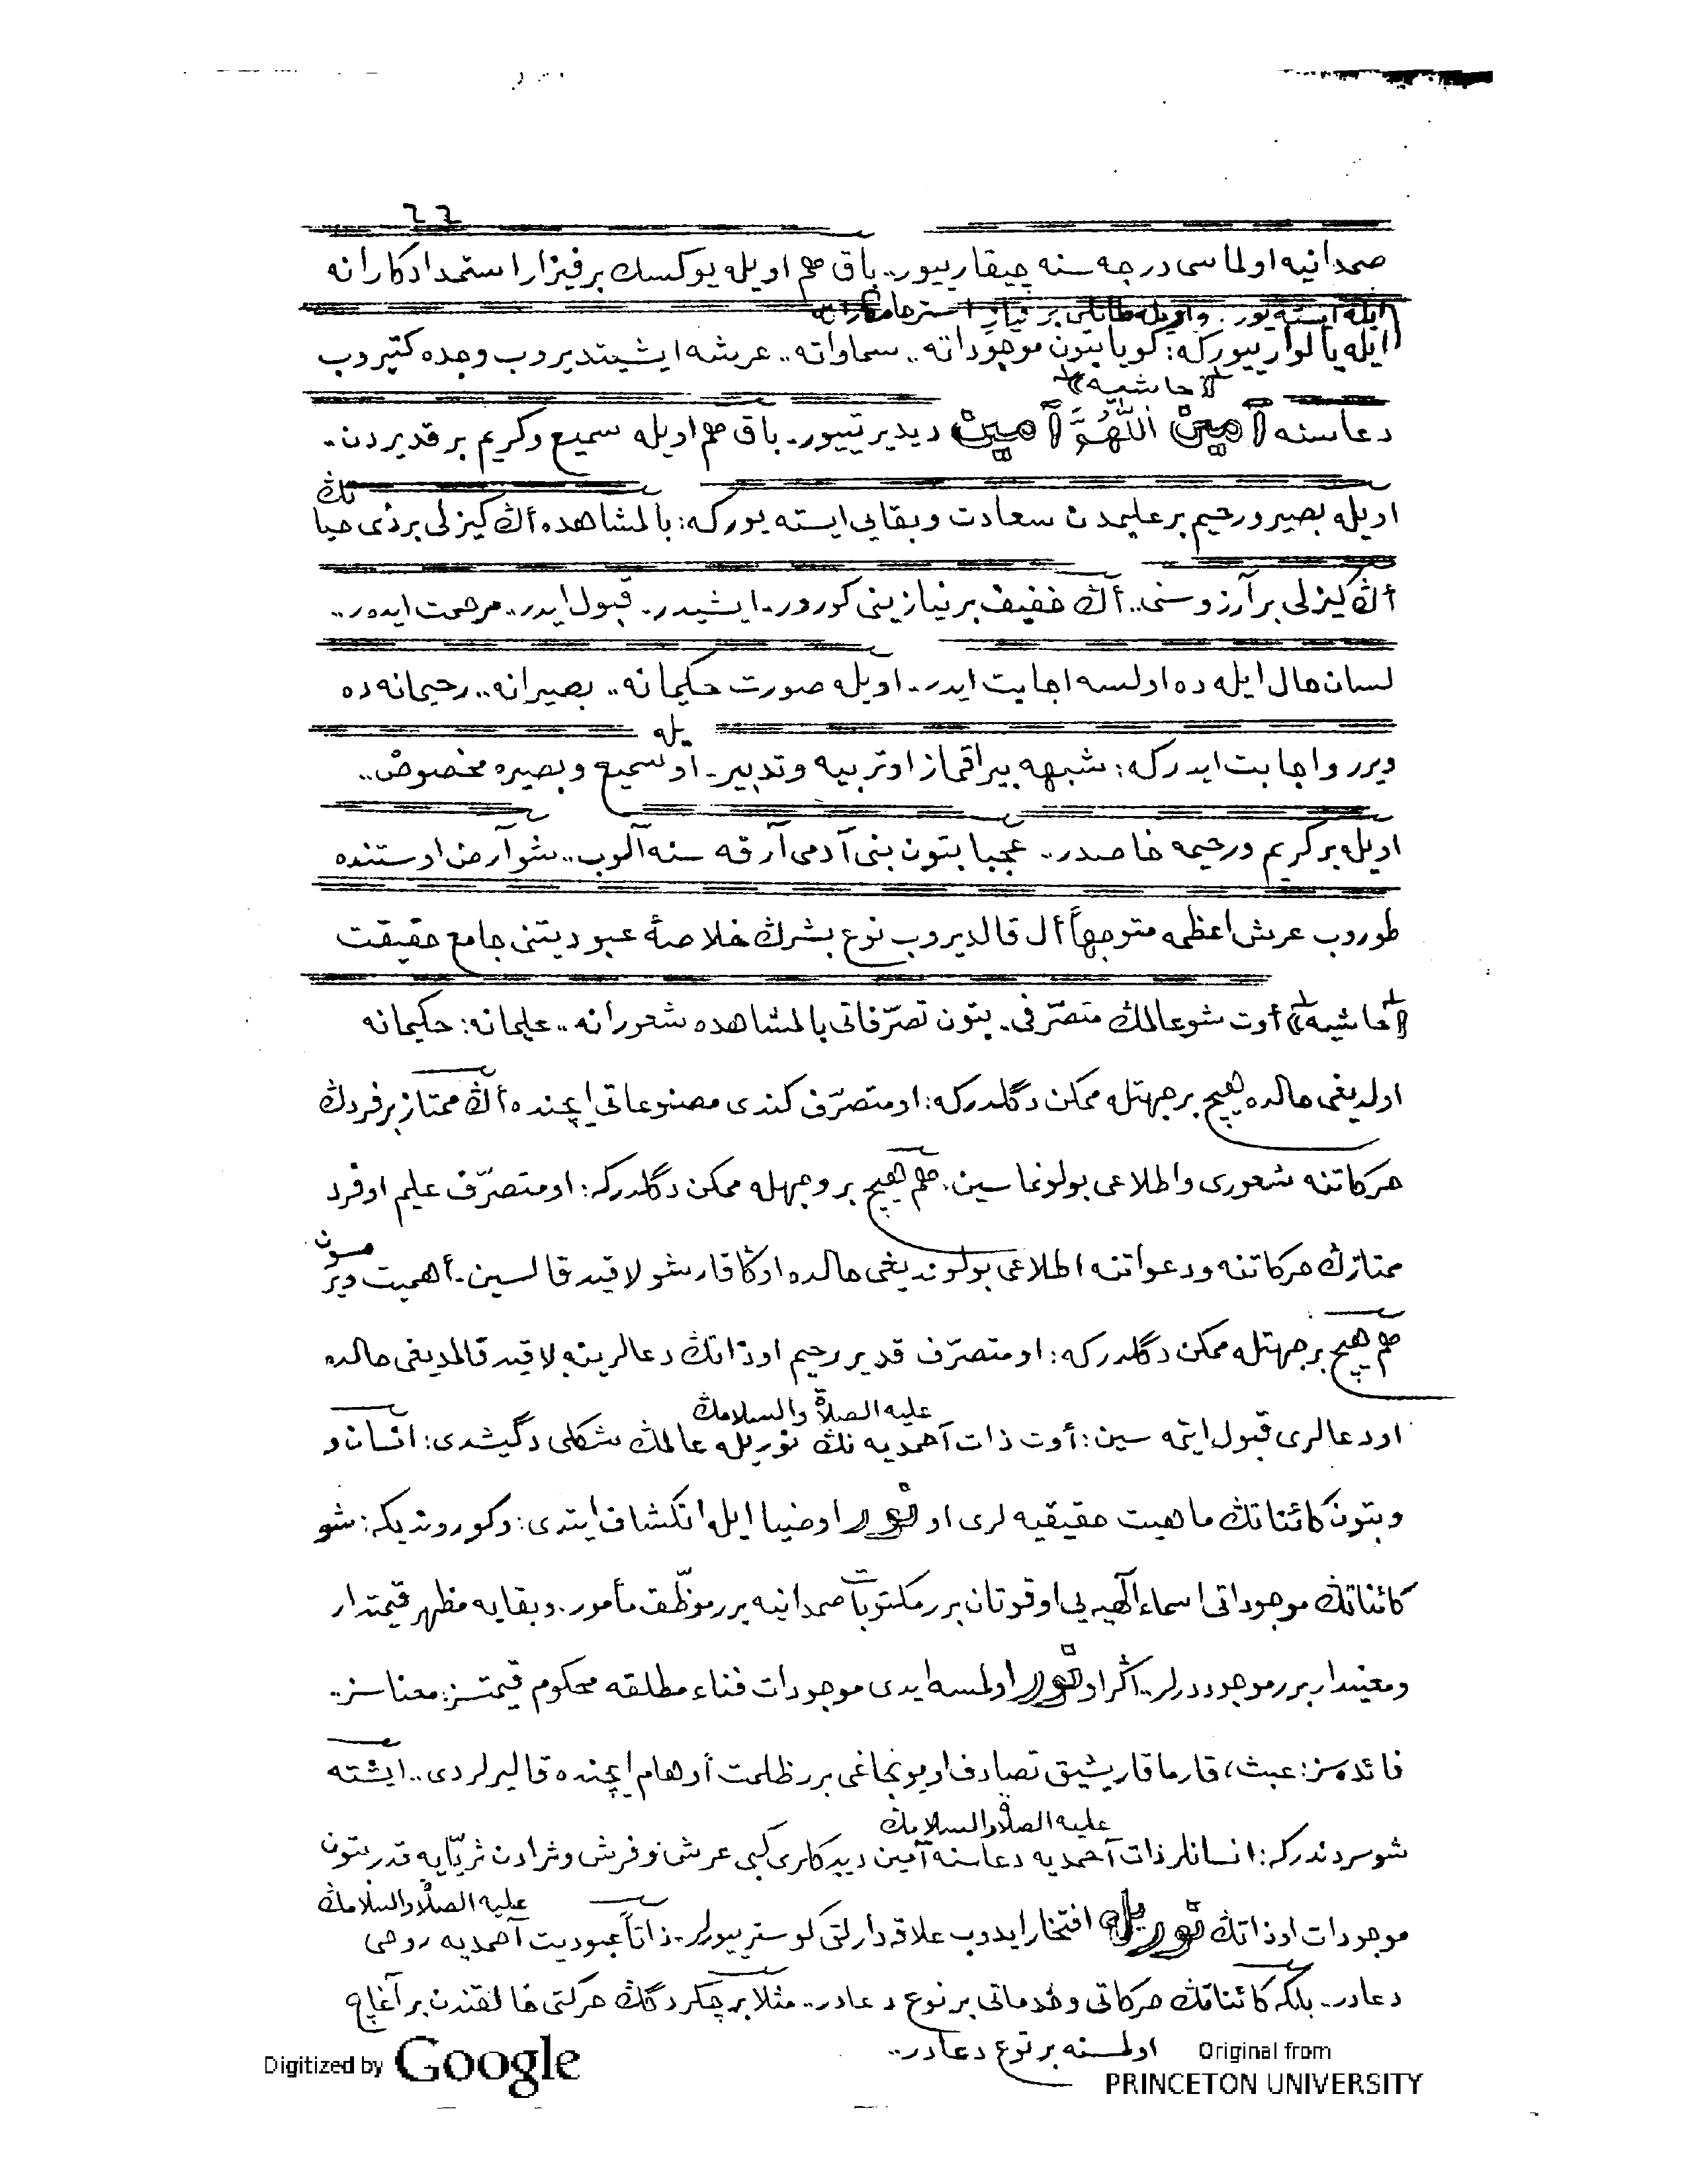 ٦٦
صمدانيه اولماسى درجه سنه چيقارييور.. باق هم اويله يوكسك بر فيزار استمدادكارانه
ايله ايسته يور. واويله طاتلى بر نياز استرحامكارانه
ايله يالوارييوركه: كويا بتون موجوداته.. سماواته.. عرشه ايشيتديروب وجده كتيروب
«حاشيه»
دعاسنه آمِينْ اَللّٰهُمَّ آمِينْ ديديرتييور. باق هم اويله سميع وكريم بر قديردن..
اويله بصير ورحيم بر عليمدن سعادت وبقايى ايسته يوركه: بالمشاهده أڭ كيزلى بر ذى حياتڭ
أڭ كيزلى بر آرزوسنى.. أڭ خفيف بر نيازينى كورور. ايشيدر. قبول ايدر.. مرحمت ايده ر..
لسان حال ايله ده اولسه اجابت ايدر.. اويله صورت حكيمانه.. بصيرانه.. رحيمانه ده
ويرر واجابت ايدركه: شبهه بيراقماز اوتربيه وتدبير. اويله سميع وبصيره مخصوص..
اويله بر كريم ورحيمه خاصدر.. عجبا بتون بنى آدمى آرقه سنه آلوب.. شو آرض اوستنده
طوروب عرش اعظمه متوجهاً أل قالديروب نوع بشرڭ خلاصهٔ عبوديتنى جامع حقيقت
«حاشيه» أوت شو عالمڭ متصرّفى. بتون تصرّفاتى بالمشاهده شعورانه.. عليمانه: حكيمانه
اولديغى حالده هيچ بر جهتله ممكن دگلدركه: او متصرّف كندى مصنوعاتى ايچنده أڭ ممتاز بر فردڭ
حركاتنه شعورى واطلاعى بولونماسين. هم هيچ بر وجهله ممكن دگلدركه: او متصرّف عليم اوفرد
ممتازڭ حركاتنه ودعواتنه اطلاعى بولونديغى حالده اوڭا قارشو لاقيد قالسين. أهميت ويرمسون
هم هيچ بر جهتله ممكن دگلدركه: او متصرّف قدير رحيم اوذاتڭ دعالرينه لاقيد قالمديغى حالده
او دعالرى قبول ايتمه سين: أوت ذات آحمديه عليه الصلاة والسلامڭ نڭ نوريله عالمڭ شكلى دگيشدى: انسان و
وبتون كائناتڭ ماهيت حقيقيه لرى او نور اوضيا ايله انكشاف ايتدى: وكوروندى كه: شو
كائناتڭ موجوداتى اسماء آلهيه يى اوقوتان برر مكتوبات صمدانيه برر موظّف مأمور. وبقايه مظهر قيمتدار
ومعنيدار برر موجوددرلر.. اگر او نور اولمسه ايدى موجودات فناء مطلقه محكوم قيمتسز: معناسز..
فائده سز: عبث، قارما قاريشيق تصادف اويونجاغى برر ظلمت أوهام ايچنده قاليرلردى.. ايشته
شو سردندركه: انسانلر ذات آحمديه عليه الصلاة والسلامڭ دعاسنه آمين ديدكلرى كبى عرش وفرش وثرادن ثريّايه قدر بتون
موجودات اوذاتڭ نوريله افتخار ايدوب علاقه دارلق كوسترييورلر. ذاتاً عبوديت آحمديه عليه الصلاة والسلامڭ روحى
دعادر.. بلكه كائناتڭ حركاتى وخدماتى بر نوع دعادر.. مثلا بر چكردگڭ حركتى خالقندن بر آغاچ
اولمسنه بر نوع دعادر..
Digitized by Google
Original from
PRINCETON UNIVERSITY